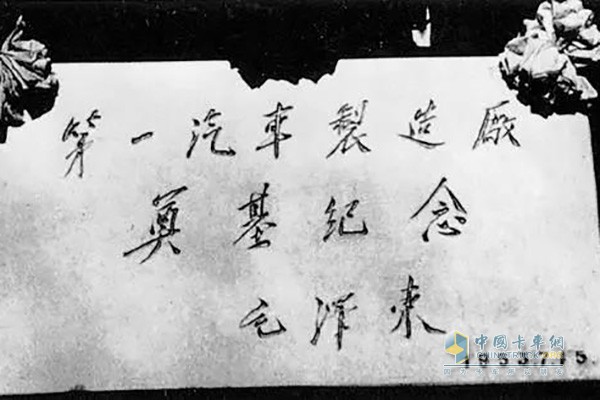 第一汽車製造廠
奠基紀念
毛澤東
中国卡车网
CHINATRUCK.ORG
1953.7.15